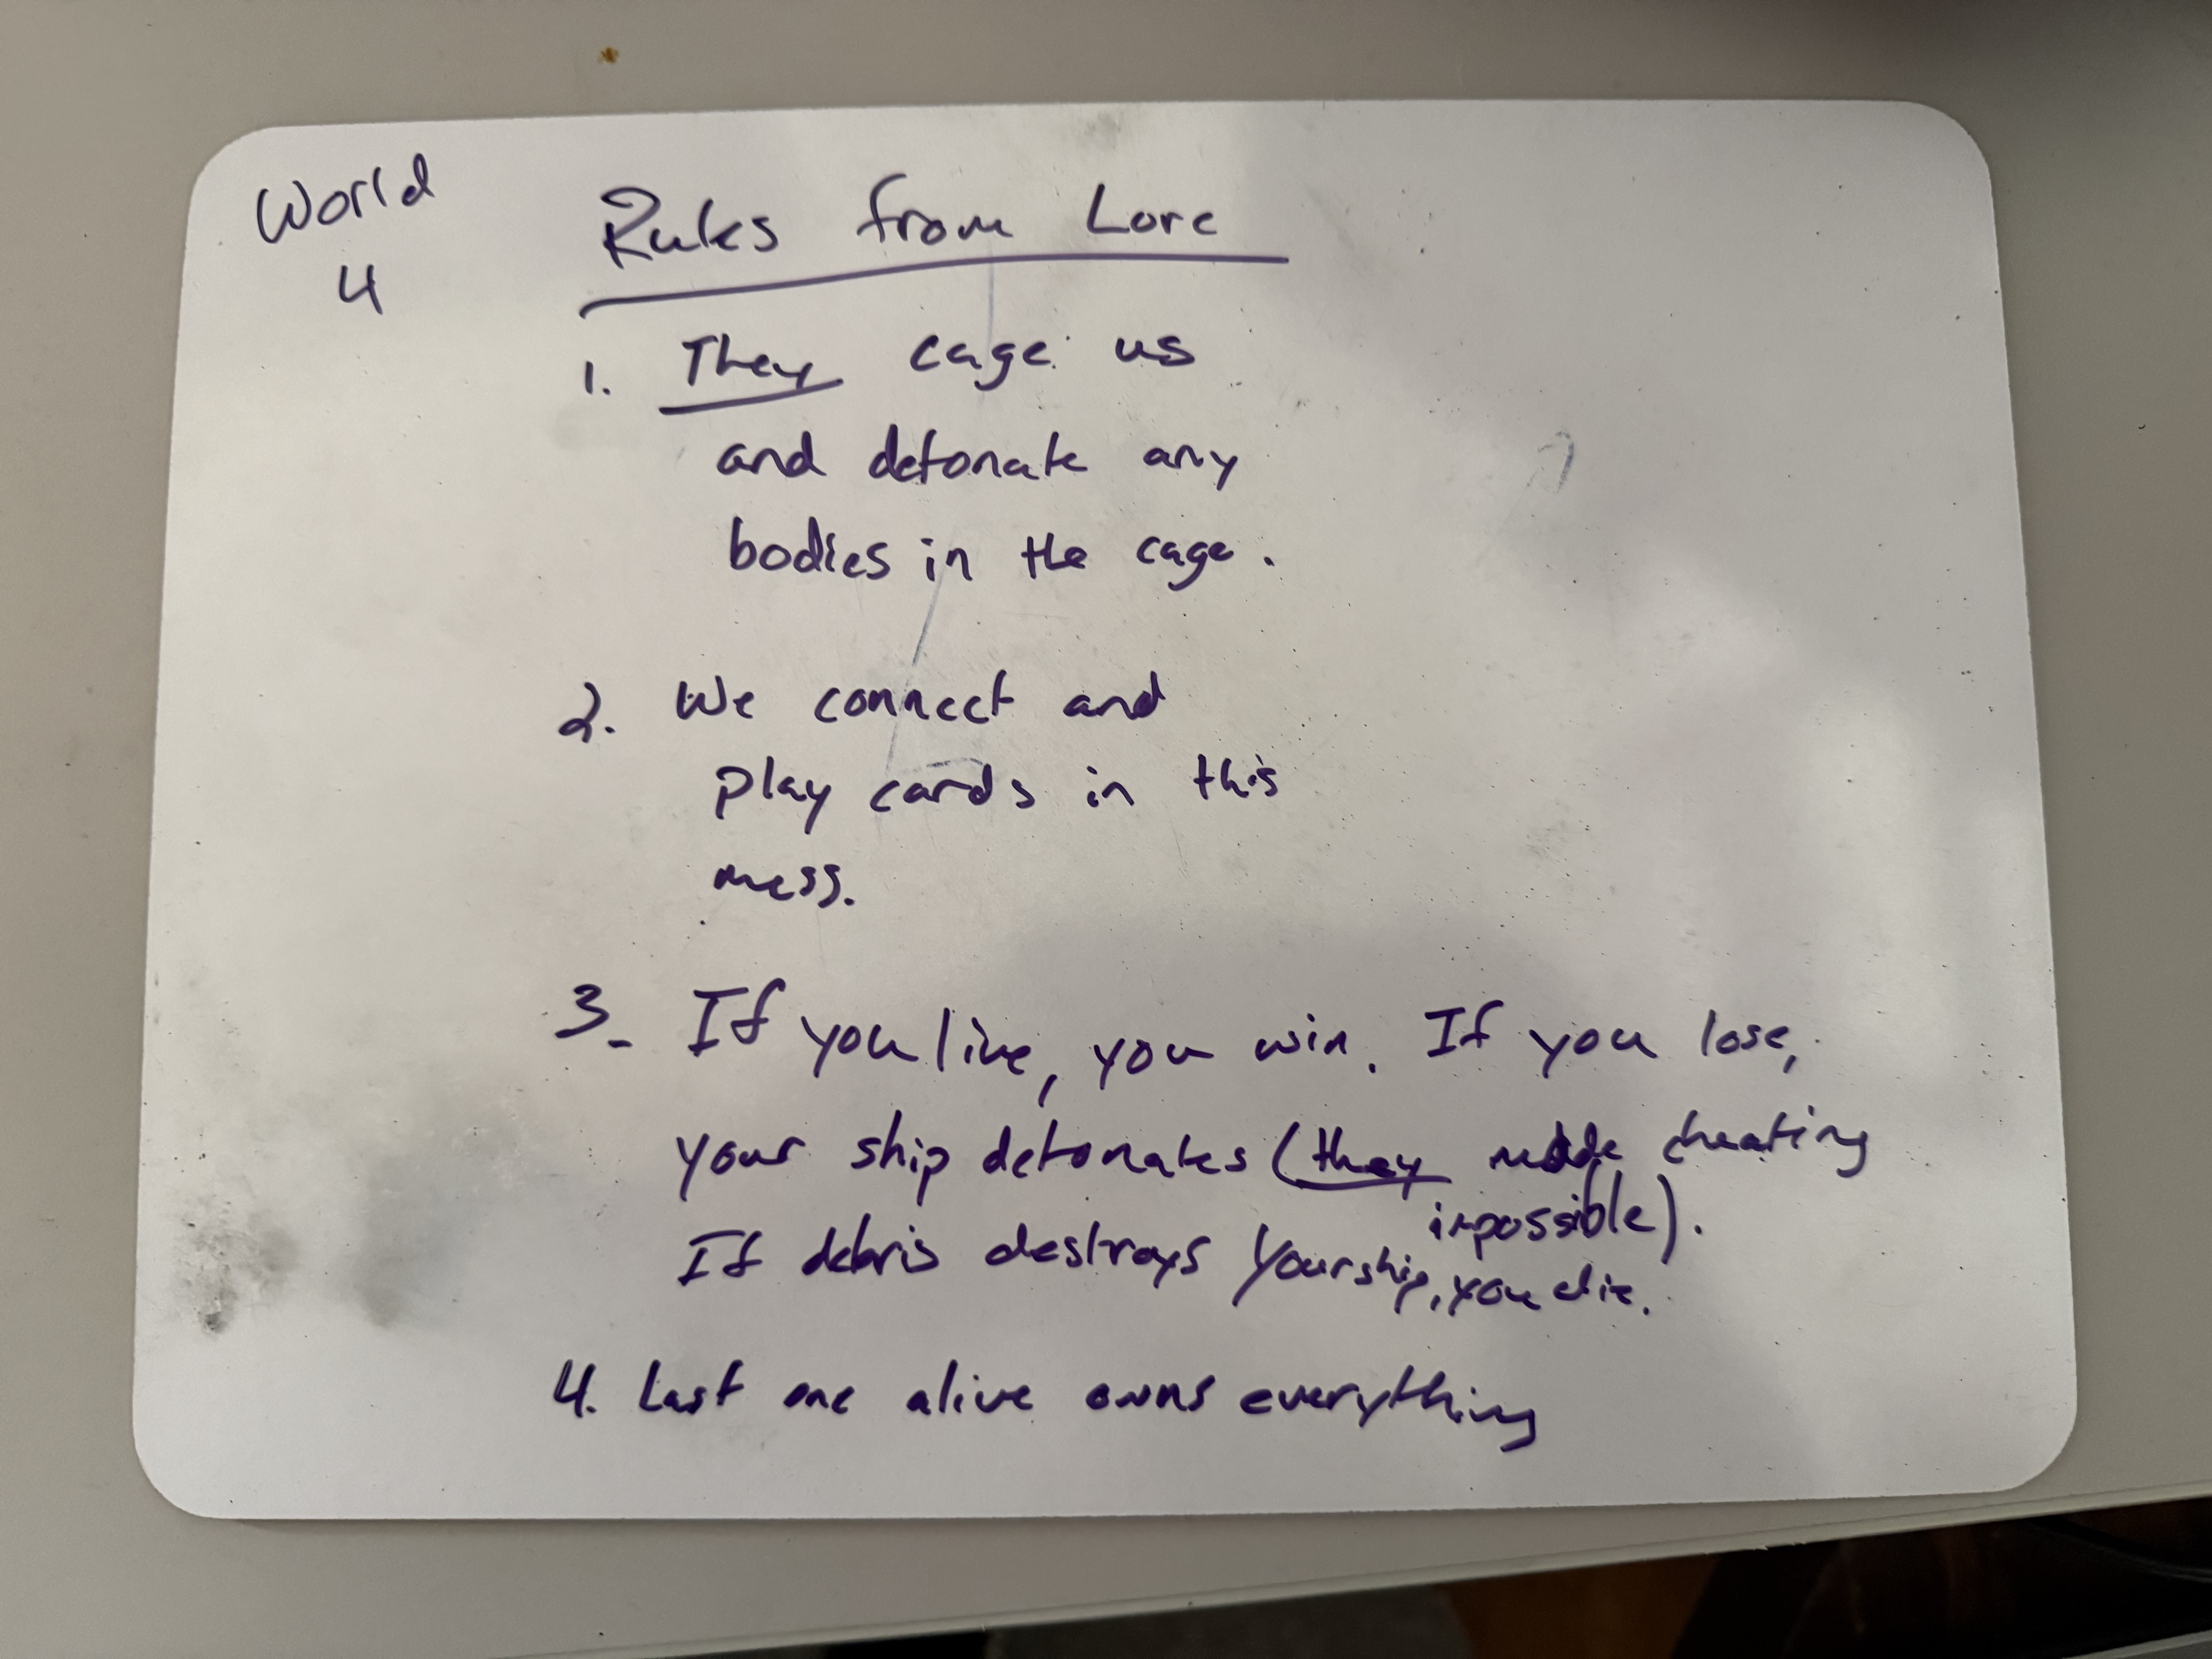 World
4
Rules from Lore
1. They cage us
and detonate any
bodies in the cage.
2. We connect and
play cards in this
mess.
3. If you live, you win. If you lose,
your ship detonates (they made cheating
impossible).
If debris destroys your ship, you die.
4. Last one alive owns everything